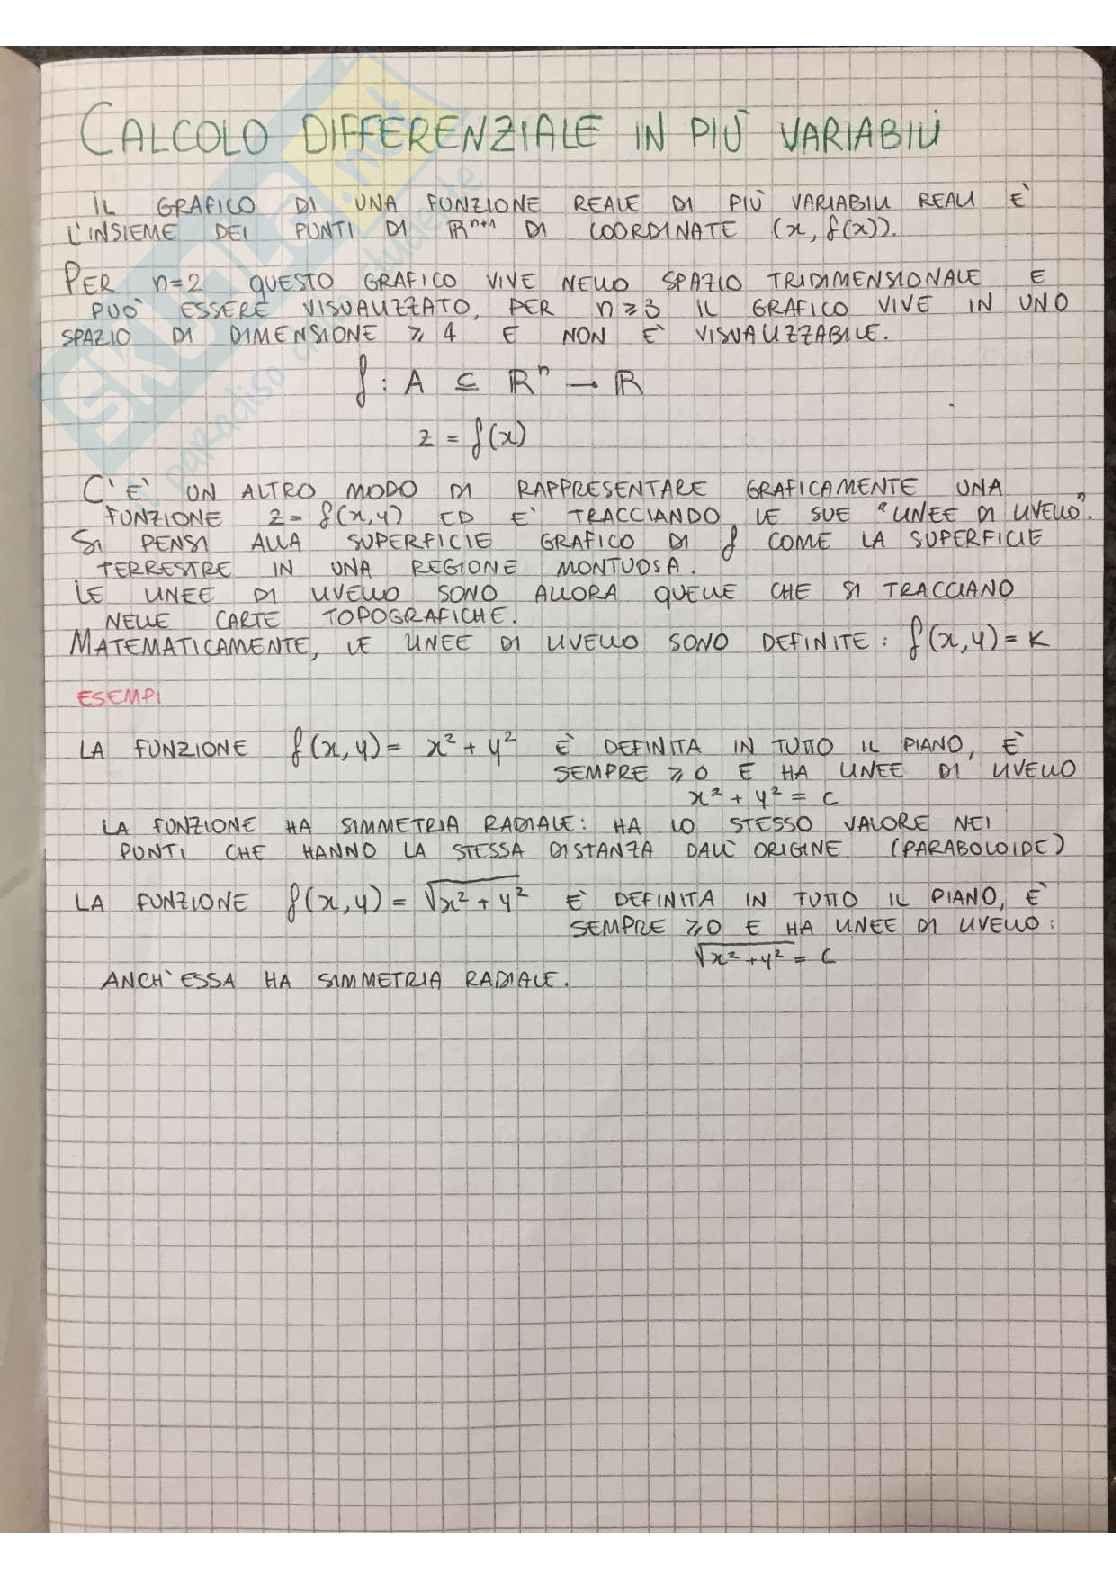 CALCOLO DIFFERENZIALE IN PIÙ VARIABILI
IL GRAFICO DI UNA FUNZIONE REALE DI PIÙ VARIABILI REALI È
L'INSIEME DEI PUNTI DI ℝⁿ⁺¹ DI COORDINATE (x, f(x)).
PER n=2 QUESTO GRAFICO VIVE NELLO SPAZIO TRIDIMENSIONALE E
PUO' ESSERE VISUALIZZATO, PER n≥3 IL GRAFICO VIVE IN UNO
SPAZIO DI DIMENSIONE ≥4 E NON E' VISUALIZZABILE.
f: A ⊆ ℝⁿ → ℝ
z = f(x)
C'E' UN ALTRO MODO DI RAPPRESENTARE GRAFICAMENTE UNA
FUNZIONE z = f(x,y) ED E' TRACCIANDO LE SUE "LINEE DI LIVELLO".
SI PENSI ALLA SUPERFICIE GRAFICO DI f COME LA SUPERFICIE
TERRESTRE IN UNA REGIONE MONTUOSA.
LE LINEE DI LIVELLO SONO ALLORA QUELLE CHE SI TRACCIANO
NELLE CARTE TOPOGRAFICHE.
MATEMATICAMENTE, LE LINEE DI LIVELLO SONO DEFINITE: f(x,y)=K
ESEMPI
LA FUNZIONE f(x,y) = x² + y² È DEFINITA IN TUTTO IL PIANO, È
SEMPRE ≥0 E HA LINEE DI LIVELLO
x² + y² = C
LA FUNZIONE HA SIMMETRIA RADIALE: HA LO STESSO VALORE NEI
PUNTI CHE HANNO LA STESSA DISTANZA DALL'ORIGINE (PARABOLOIDE)
LA FUNZIONE f(x,y) = √(x² + y²) È DEFINITA IN TUTTO IL PIANO, È
SEMPRE ≥0 E HA LINEE DI LIVELLO:
√(x² + y²) = C
ANCH'ESSA HA SIMMETRIA RADIALE.